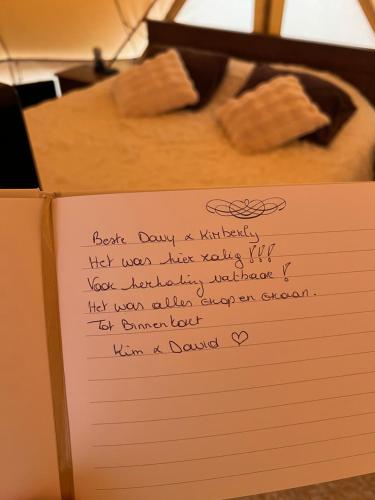 Beste Davy & Kimberly
Het was hier zalig !!!
Voor herhaling vatbaar !
Het was alles erop en eraan.
Tot Binnenkort
Kim & David ♡